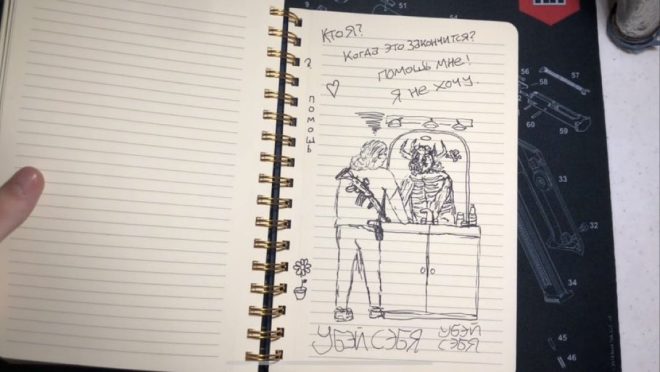 КТО Я?
КОГДА ЭТО ЗАКОНЧИТСЯ?
ПОМОШЬ МНЕ!
Я НЕ ХОЧУ.
?
ПОМОШЬ
УБЭЙ СЭБЯ
УБЭЙ
СЭБЯ
56
57
58
59
60
33
34
32
45
46